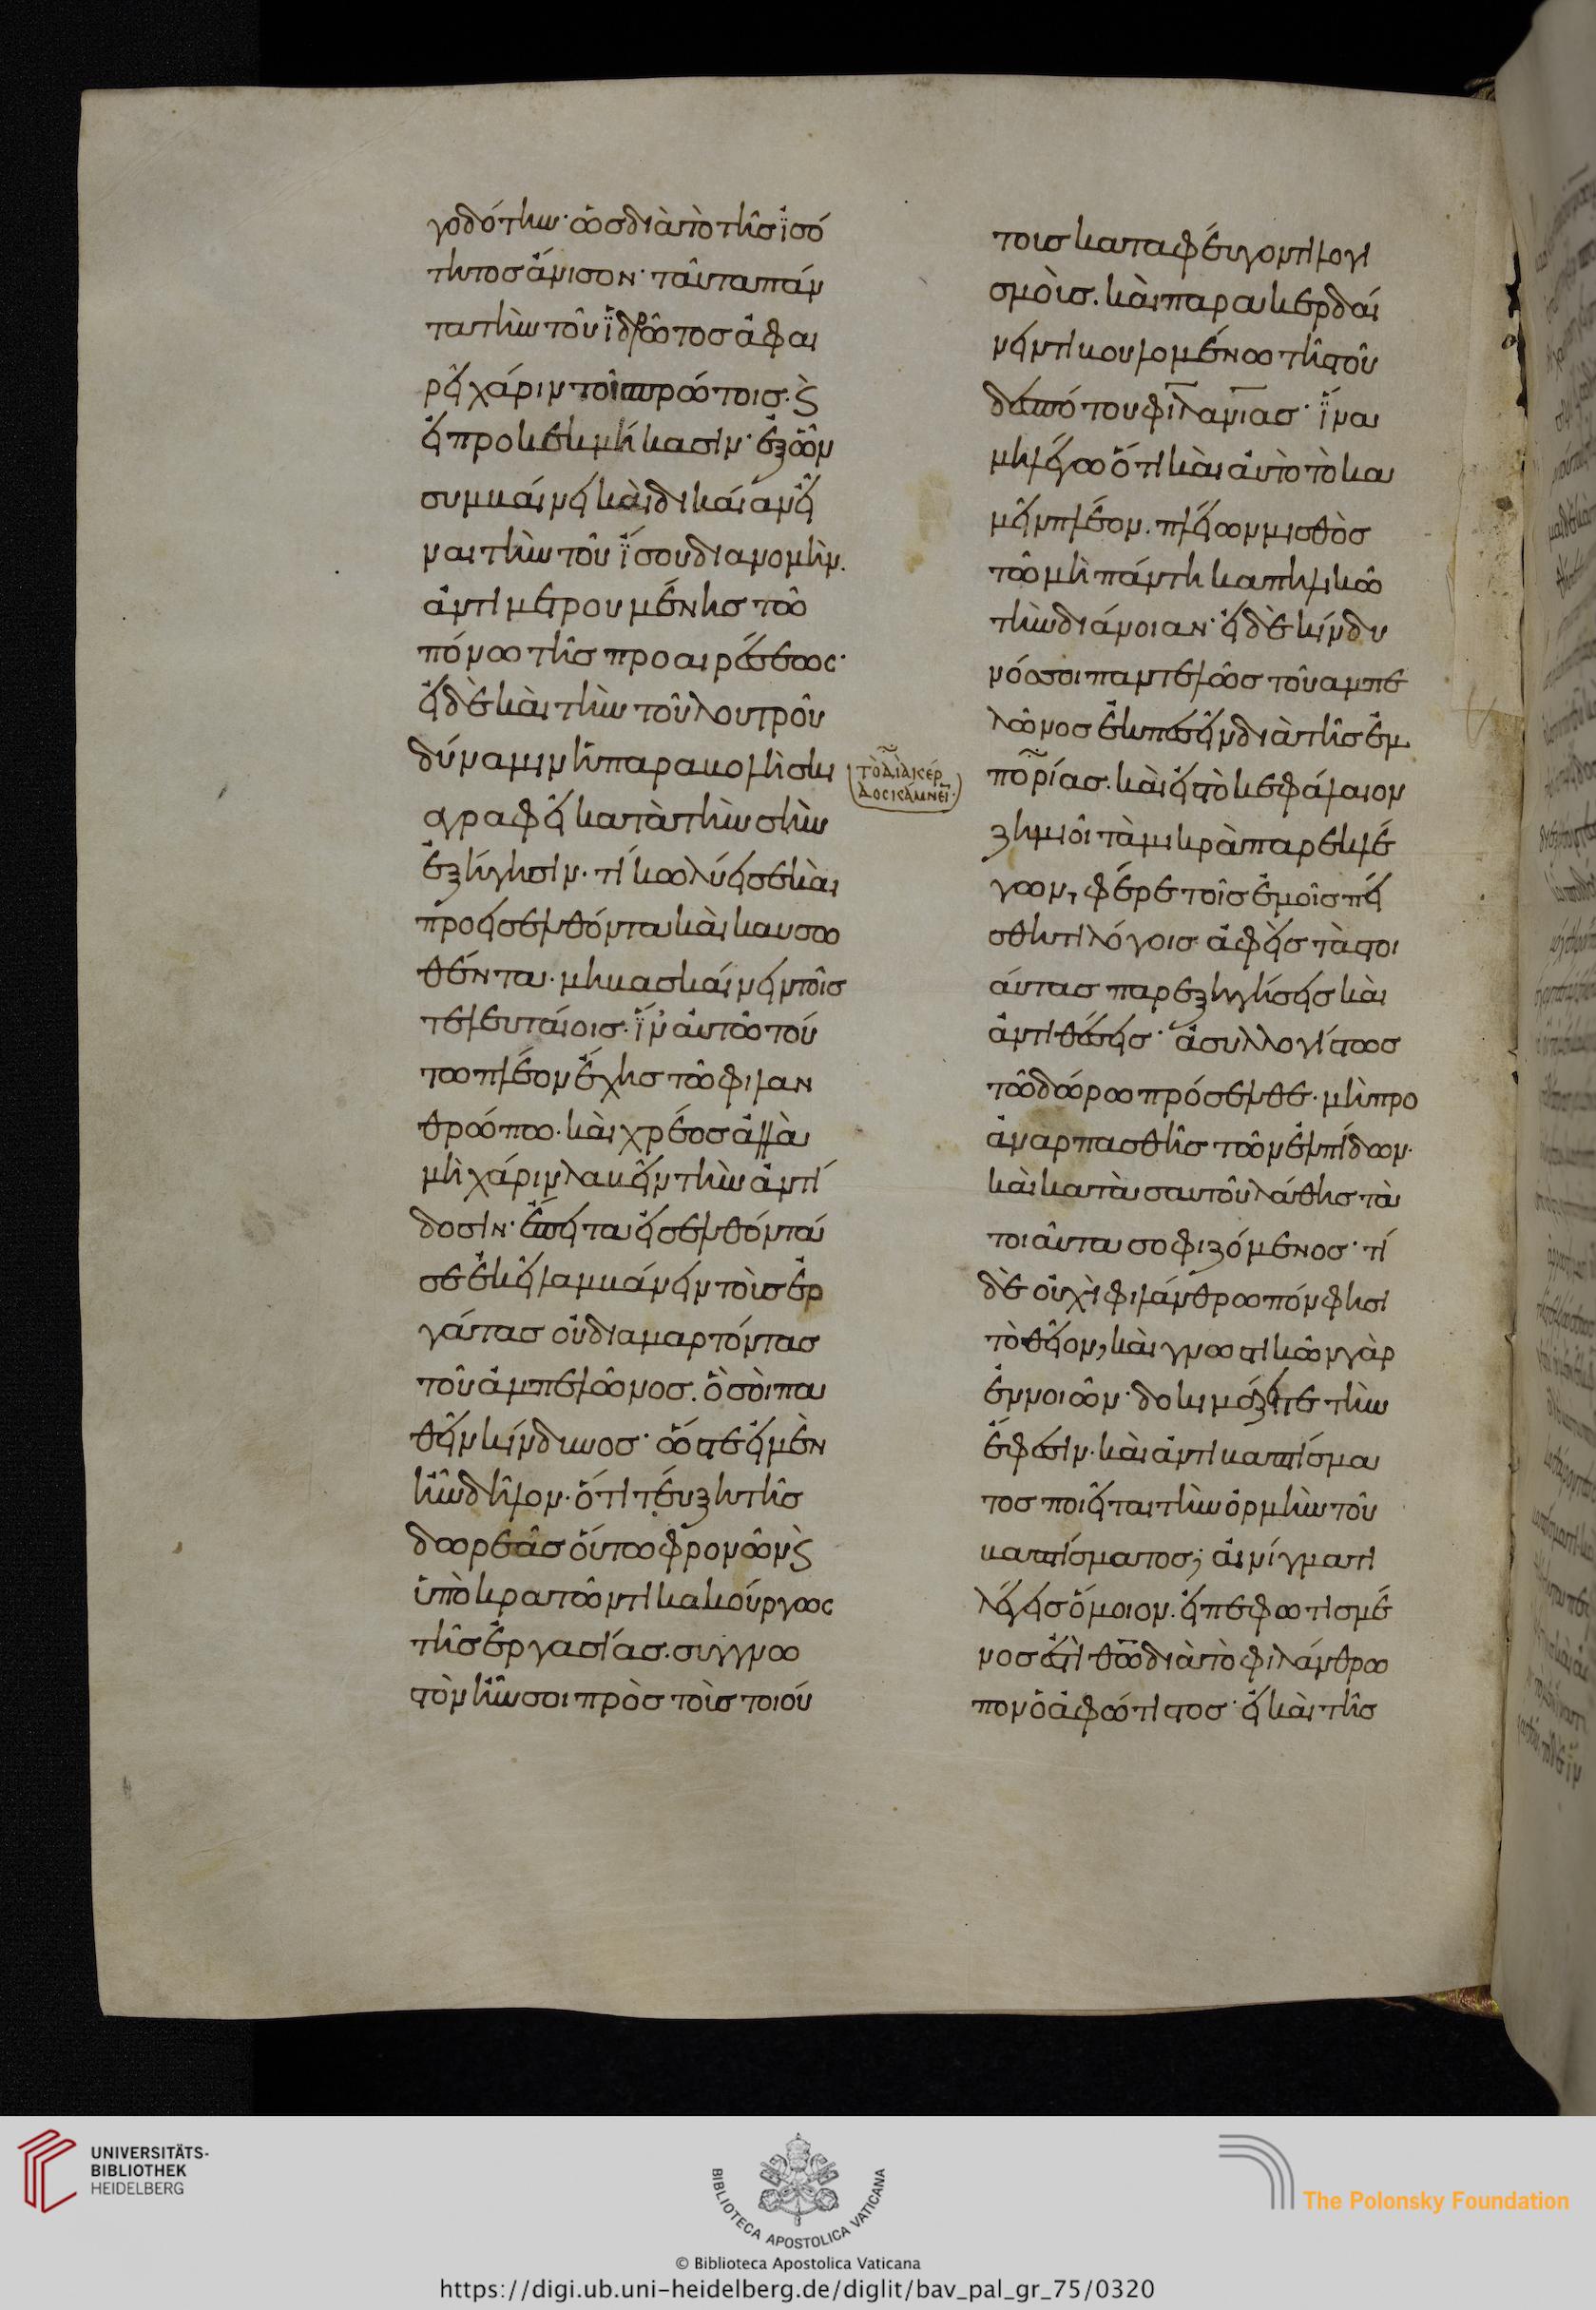 γοδότην· ὡσ διὰ τὸ τῆσ ἰσό
τητοσ ἄνισον· ταῦτα πάν
τα τὴν τοῦ ἱδρῶτοσ ἀφαι
ρεῖ χάριν τοῖσ πρώτοισ. κ(αὶ)
εἰ προκεκμήκασιν· ἐξ ὧν
συμβαίνει καὶ δικαίαν εἶ
ναι τὴν τοῦ ἴσου διανομὴν.
ἀντιμετρουμένησ τῶ
πόνω τῆσ προαιρέσεωσ·
εἰ δὲ καὶ τὴν τοῦ λουτροῦ
δύναμιν ἡ παραβολὴ σκι
αγραφεῖ κατὰ τὴν σὴν
ἐξήγησιν. τί κωλύει σε καὶ
προεισελθόντα καὶ καυσω
θέντα. μὴ βασκαίνειν τοῖσ
τελευταίοισ. ἵν' αὐτῶ τού
τω πλέον ἔχησ τῶ φιλαν
θρώπω. καὶ χρέοσ ἀλλὰ
μὴ χάριν λαβεῖν τὴν ἀντί
δοσιν· ἔπειτα εἰσελθόντα
σε ἐκεῖ λαμβάνειν τοῖσ ἐρ
γάταισ οὐ διαμαρτόντασ
τοῦ ἀμπελῶνοσ. ὃ σοὶ πα
θεῖν κίνδυνοσ· ὥστε εἰ μὲν
ἦν δῆλον. ὅτι τεύξη τῆσ
δωρεᾶσ οὕτω φρονῶν κ(αὶ)
ὑποκρατῶν τι κακούργωσ
τῆσ ἐργασίασ. συγγνω
στὸν ἦν σοι πρὸσ τοὶσ τοιού
τὸ διὰ κέρ
δοσ κάμνειν
τοισ καταφεύγοντι λογι
σμοῖσ. καὶ παρακερδαί
νειν τι βουλομένω τῆσ τοῦ
δεσπότου φιλανίασ· ἵνα
μὴ λέγω ὅτι καὶ αὐτὸ τὸ κα
μεῖν πλέον. πλείων μισθὸσ
τῶ μὴ πάντη καπηλικῶ
τὴν διάνοιαν· εἰ δὲ κίνδυ
νόσ σοι παντελῶσ τοῦ αμπε
λῶνοσ ἐκπεσεῖν διὰ τῆσ ἐμ
πορίασ. καὶ εἰσ τὸ κεφάλαιον
ζημιοῖ τὰ μικρὰ παρεκλέ
γων, φέρε τοῖσ ἐμοῖσ πεί
σθητι λόγοισ. ἀφεὶσ τὰσ τοι
αύτασ παρεξηγήσεισ καὶ
ἀντιθέσεισ· ἀσυλλογίστωσ
τῶ δώρω πρόσελθε. μὴ προ
αναρπασθῆσ τῶν ἐλπίδων.
καὶ κατὰ σαυτοῦ λάθησ τὰ
τοιαῦτα σοφιζόμενοσ· τί
δὲ οὐχὶ φιλάνθρωπόν φησι
τὸ θεῖον, καὶ γνωστικῶν γὰρ
ἐννοιῶν· δοκιμάζει τε τὴν
ἔφεσιν. καὶ ἀντὶ βαπτίσμα
τοσ ποιεῖται τὴν ὁρμὴν τοῦ
βαπτίσματοσ; αἰνίγματι
λέγεισ ὅμοιον. εἰ πεφωτισμέ
νοσ ἐστὶ θῶ διὰ τὸ φιλάνθρω
πον ὁ ἀφώτιστοσ· εἰ καὶ τῆσ
UNIVERSITÄTS-
BIBLIOTHEK
HEIDELBERG
BIBLIOTECA APOSTOLICA VATICANA
The Polonsky Foundation
© Biblioteca Apostolica Vaticana
https://digi.ub.uni-heidelberg.de/diglit/bav_pal_gr_75/0320